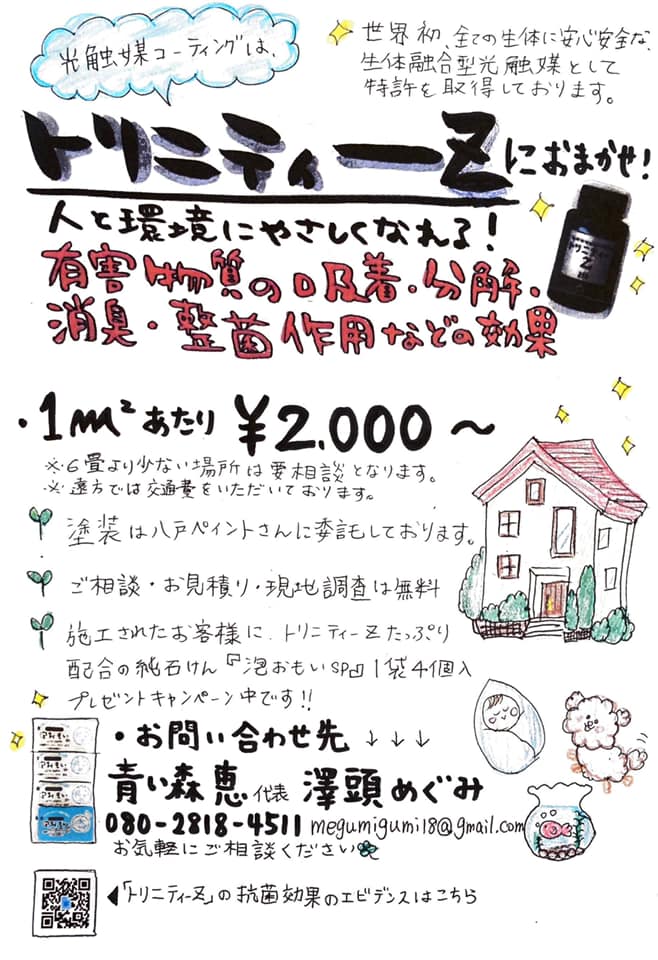 光触媒コーティングは、
世界初、全ての生体に安心安全な、
生体融合型光触媒として
特許を取得しております。
トリニティーZにおまかせ!
人と環境にやさしくなれる!
有害物質の吸着・分解・
消臭・整菌作用などの効果
トリニティー
Z
・1m²あたり ¥2.000〜
※6畳より少ない場所は要相談となります。
※遠方では交通費をいただいております。
塗装は八戸ペイントさんに委託しております。
ご相談・お見積り・現地調査は無料
施工されたお客様に、トリニティーZたっぷり
配合の純石けん『泡おもいSP』1袋4個入
プレゼントキャンペーン中です!!
・お問い合わせ先 ↓↓↓
青い森 恵 代表 澤頭めぐみ
080-2818-4511 megumigumi18@gmail.com
お気軽にご相談ください
◀「トリニティーZ」の抗菌効果のエビデンスはこちら